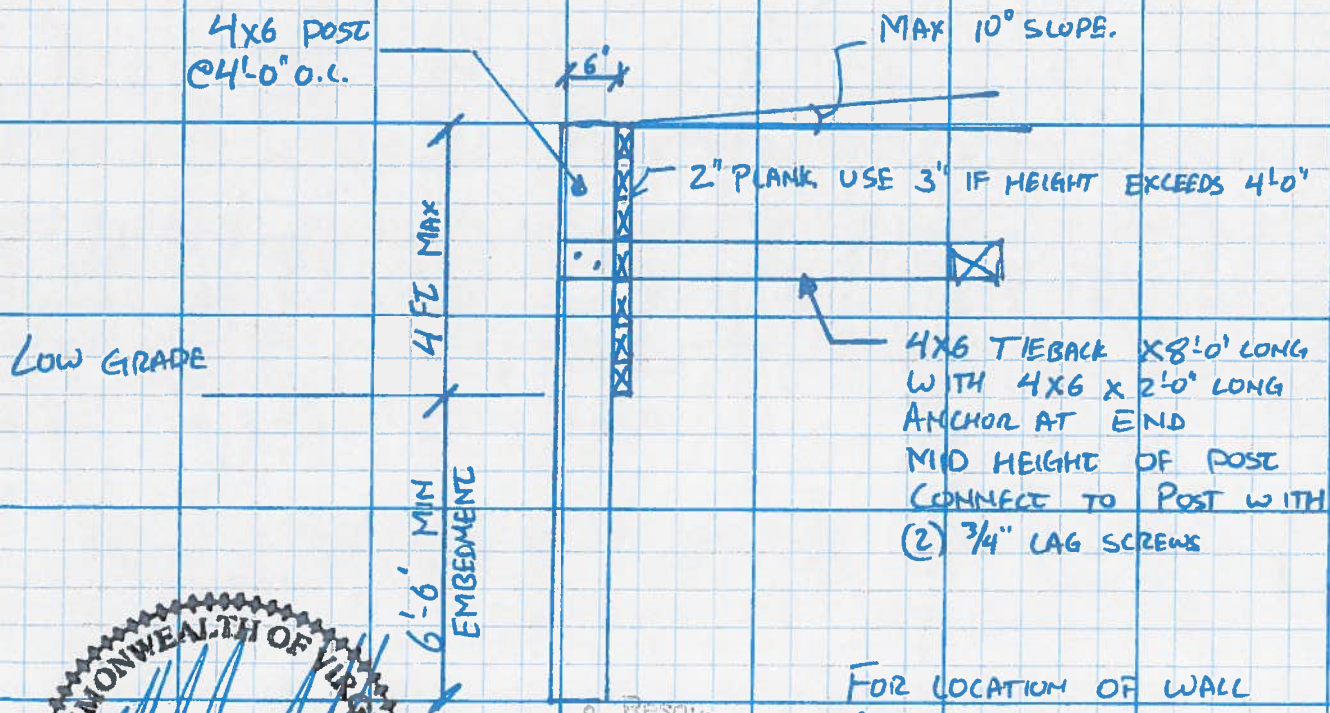 4X6 POST
@4'-0" O.C.
6"
MAX 10° SLOPE.
2" PLANK USE 3" IF HEIGHT EXCEEDS 4'-0"
4 FT MAX
LOW GRADE
4X6 TIEBACK X8'-0" LONG
WITH 4X6 X 2'-0" LONG
ANCHOR AT END
MID HEIGHT OF POST
CONNECT TO POST WITH
(2) 3/4" LAG SCREWS
6'-6" MIN
EMBEDMENT
MONWEALTH OF VIR
FOR LOCATION OF WALL